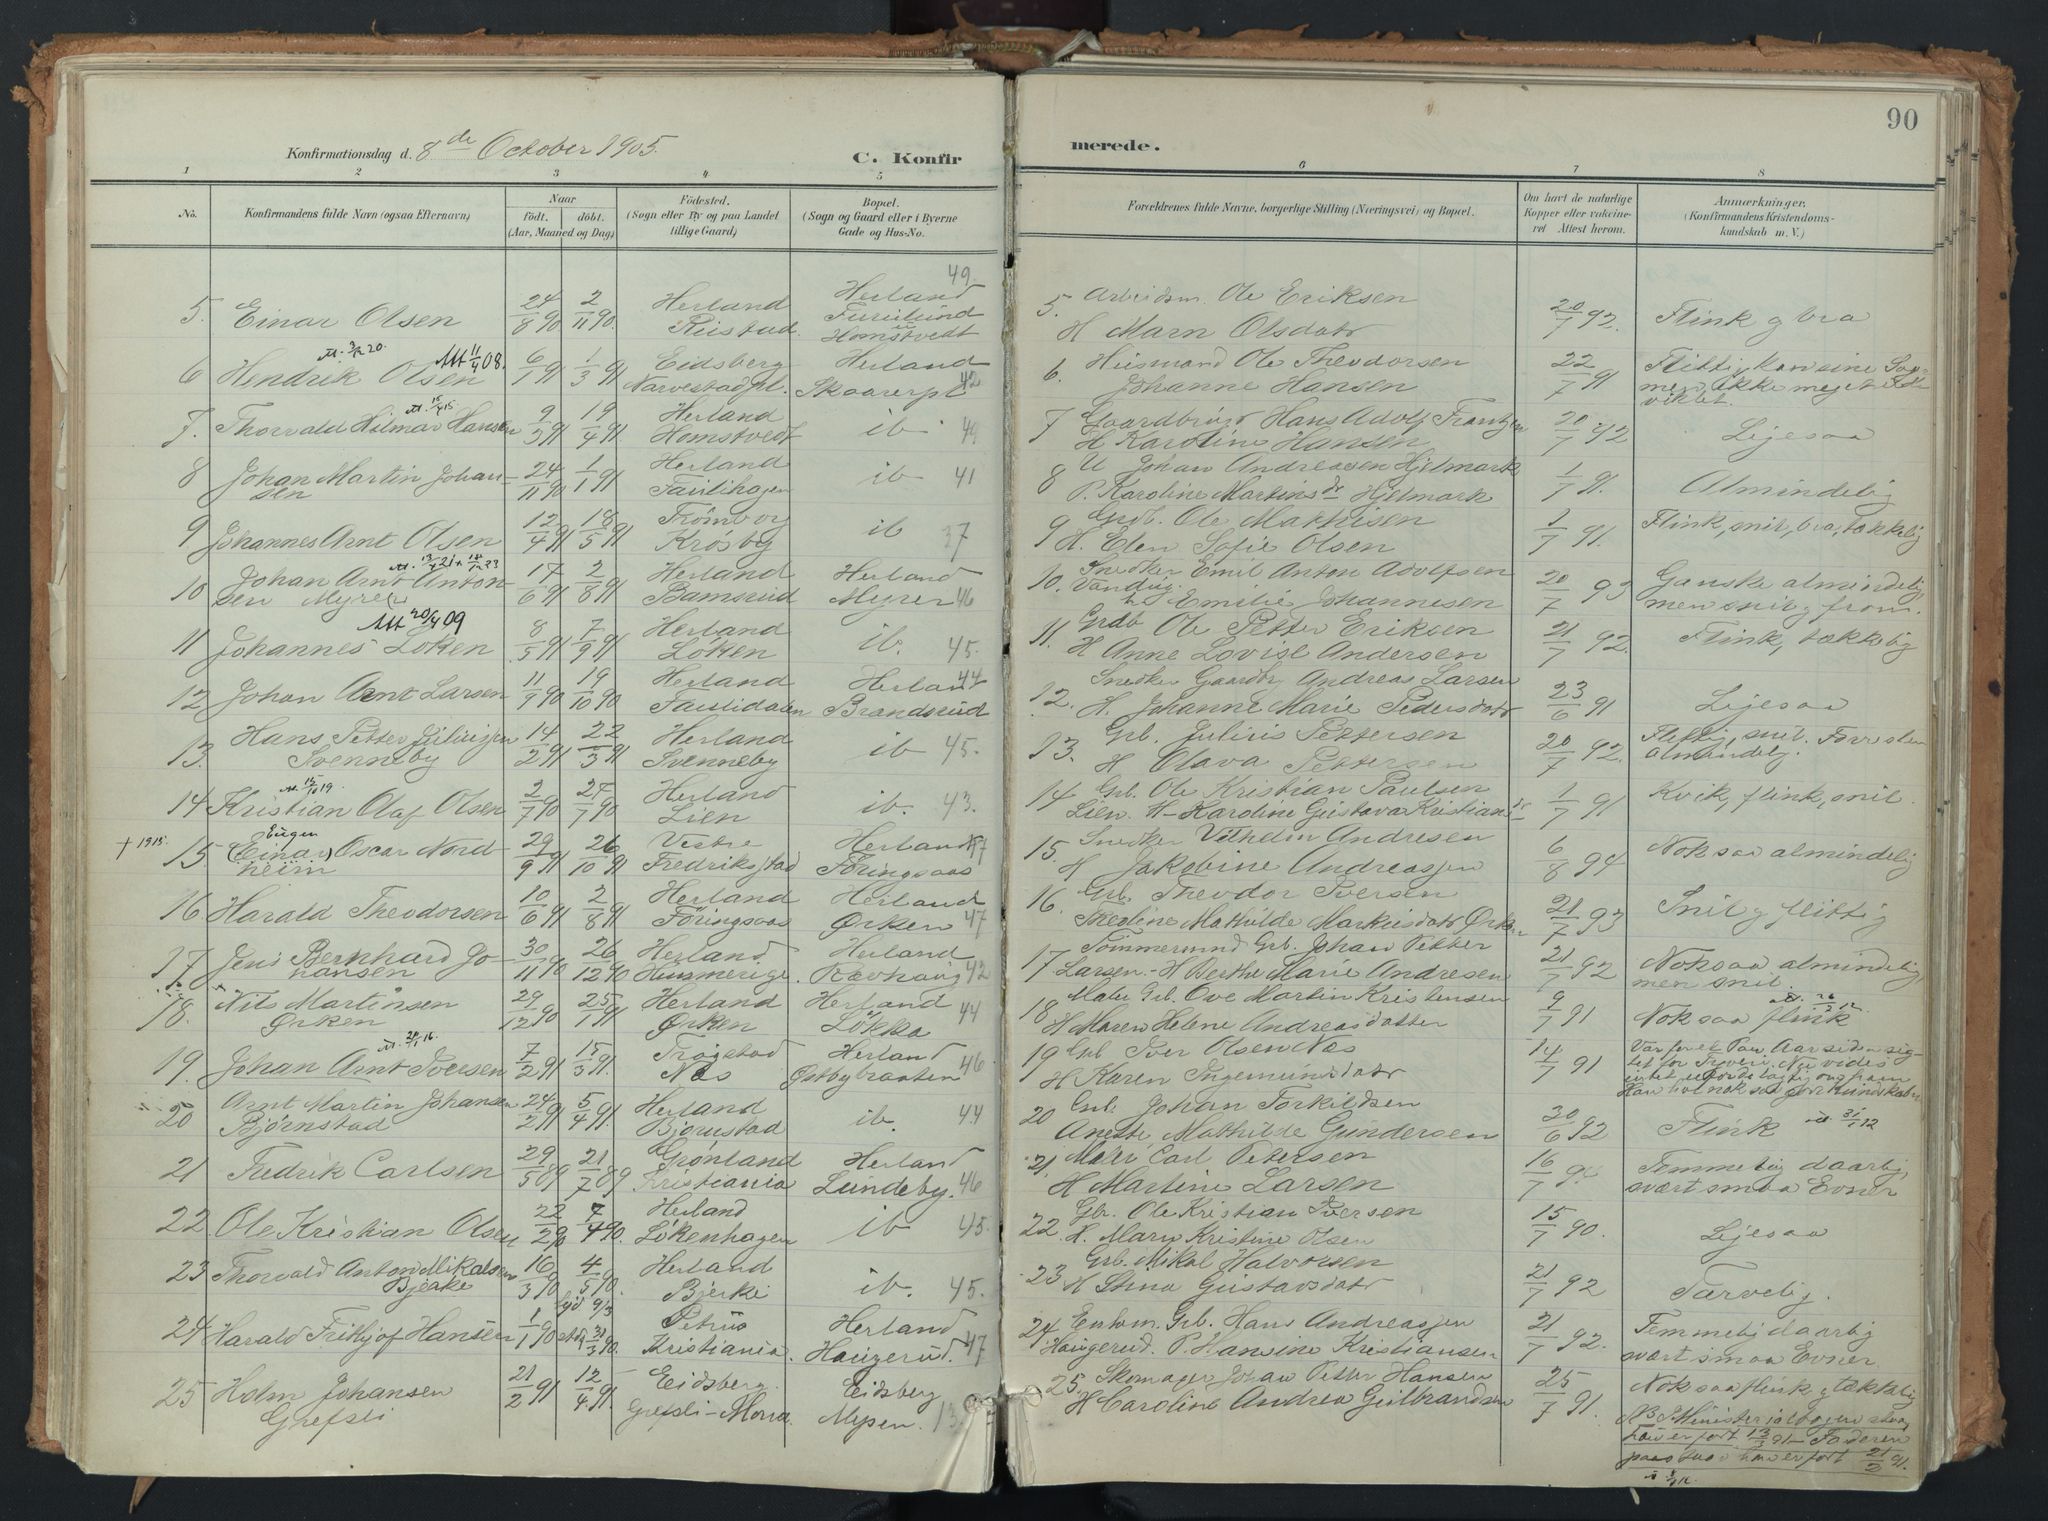 90
Konfirmationsdag d. 8de October 1905.
C. Konfir
merede.
1 2 3 4 5 6 7 8
No.
Konfirmandens fulde Navn (ogsaa Efternavn).
Naar
födt. döbt.
(Aar, Maaned og Dag)
Födested.
(Sogn eller By og paa Landet
tillige Gaard)
Bopæl.
(Sogn og Gaard eller i Byerne
Gade og Hus-No.
Forældrenes fulde Navne, borgerlige Stilling (Næringsvei) og Bopæl.
Om havt de naturlige
Kopper eller vaccine-
ret Attest herom.
Anmærkninger.
(Konfirmandens Kristendoms-
kundskab m. V.)
5. Einar Olsen 24/8 90 2/11 90. Herland Reistad. Herland Furulund Homstvedt 49.
5. Arbeidsm. Ole Eriksen
H Marn Olsdatr 20/7 92. Flink g bra
6 Hendrik Olsen 6/1 91 1/3 91 Eidsberg Narvestad pl. Herland Skaarerpl 42
Att 11/4 08.
6. Husmand Ole Theodorsen
Johanne Hansen 22/7 91
7. Thorvald Hilmar Hansen 9/3 91 19/4 91 Herland Homstvedt ib 49
7 Gaardbrug Hans Adolf Frantzen
H Karoline Hansen 20/7 92 Ligesaa
8 Johan Martin Johan-
sen 24/11 90 1/1 91 Herland Faulihagen ib 41
8 U Johan Andreasen Hjelmark
P. Karoline Martinsdr Hjelmark 1/7 91. Almindelig
9 Johannes Arnt Olsen 12/4 91 18/5 91 Trömborg Krosby ib 37
9 Grdb. Ole Mathisen
H. Elen Sofie Olsen 1/7 91. Flink, snil, bra, tækkelig
10 Johan Arnt Anton-
sen Myrer 17/6 91 2/8 91 Herland Bamsrud Herland Myrer 46
10. Snedker Emil Anton Adolfsen
H Emelie Johannesen 20/7 93 Ganske almindelig
men snil g from.
Att 20/4 09
11 Johannes Löken 8/5 91 7/9 91 Herland Löken ib. 45.
11. Grdb Ole Petter Eriksen
H Anne Lovise Andersen 21/7 92. Flink, tækkelig
12 Johan Arnt Larsen 11/9 90 19/10 90 Herland Faulidalen Herland Brandsrud 44
12. Snedker Gaardbr Andreas Larsen
H. Johanne Marie Pedersdatr 23/6 91 Ligesaa
13. Hans Petter Juliussen
Svenneby 14/2 91 22/3 91 Herland Svenneby ib 45.
13. Grb. Julius Pettersen
H Olava Pettersen 20/7 92. Flittig, snil. Forresten
almindelig.
14 Kristian Olaf Olsen 2/7 90 27/7 90 Herland Lien ib. 43.
14 Grb. Ole Kristian Paulsen
Lien. H Karoline Gustava Kristiansdr 1/7 91 Kvik, flink, snil.
† 1915.
15 Eugen
(Einar) Oscar Nord-
heim 29/9 91 26/10 91 Vestre Fredrikstad Herland Föringsaas 47
15. Snedker Vilhelm Andresen
H Jakobine Andreassen 6/8 94 Nok saa almindelig
16 Harald Theodorsen 10/6 91 2/8 91 Herland Föringsaas Herland Ørken 47
16. Grb. Theodor Iversen
Theoline Mathilde Markusdatr Ørken 21/7 93 Snil g flittig
17 Jens Bernhard Jo-
hansen 30/11 90 26/12 90 Herland Husmerige. Herland Rævhaug 42
17 Tömmermand Grb. Johan Petter
Larsen - H Berthe Marie Andresen 21/7 92 Nok saa almindelig,
men snil.
18. Nils Martinsen
Ørken 29/12 90 25/1 91 Herland Ørken Herland Lökka 44
18 Maler Grb. Ove Martin Kristensen
H Maren Helene Andreasdatter 9/7 91 Nok saa flink
19. Johan Arnt Iversen 7/2 91 15/3 91. Trøgstad Næs Herland Østbybraaten 46
19 Grb Iver Olsen Næs
H Karen Ingemunsdatr 14/7 91 Var for et Par Aar siden sig-
tet for Tyveri.
20 Arnt Martin Johansen
Bjørnstad 24/2 91 5/4 91. Herland Bjørnstad ib. 44
20 Grb. Johan Torkildsen
Anette Mathilde Gundersen 30/6 92 Flink
21 Fredrik Carlsen 29/5 89 21/7 89 Grønland Kristiania Herland Lundeby. 46
21. Maler Carl Petersen
H Martine Larsen 16/7 94 Temmelig daarlig,
svært smaa Evner
22. Ole Kristian Olsen 22/2 90 7/4 90. Herland Lökenhagen ib 45.
22. Gbr. Ole Kristian Iversen
H. Marn Kristine Olsen 15/7 90. Ligesaa
23 Thorvald Anton Mikalsen
Bjerke 16/3 90 4/5 90. Herland Bjerke ib. 45.
23 Grb. Mikal Halvorsen
H Stina Gustavsdatr 21/7 92 Tarvelig.
24 Harald Frithjof Hansen 1/1 90 Petrus Kristiania. Herland Haugerud. 47
24 Enkem. Grb. Hans Andreassen
Haugerud. P. Hansine Kristiansen 21/7 92. Temmelig daarlig
svært smaa Evner.
25 Holm Johansen
Grefsli 21/2 91 12/4 91. Eidsberg. Grefsli-Mona. Eidsberg Mysen. 13.
25. Skomager Johan Petter Hansen
H Caroline Andrea Gulbrandsen 25/7 91. Nok saa flink g tækkelig
NB I Ministerialbogen staar
han er født 13/3 91 - Faderen
paastaar han er født 21/2 91.